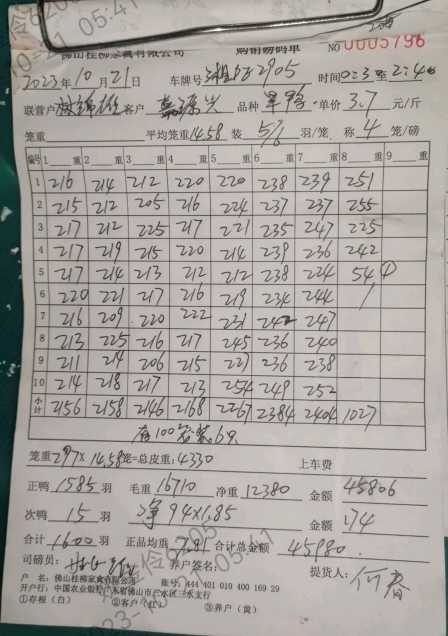 佛山桂柳家禽有限公司 购销磅码单 NO 0005796
2023年10月21日 车牌号 2905 时间
联营户 客户 品种 单价 3.7 元/斤
笼重 平均笼重 14.58 装 5/6 羽/笼 称 4 笼/磅
编号 1 重 2 重 3 重 4 重 5 重 6 重 7 重 8 重 9 重
1 216 214 212 220 220 238 239 251
2 215 212 205 216 224 237 237 255
3 217 212 225 217 221 235 247 225
4 217 219 215 220 214 239 236 242
5 217 214 213 212 212 238 224 54 ①
6 220 221 217 216 219 234 244
7 216 209 220 222 231 242 247
8 213 225 216 217 245 236 240
9 211 214 206 215 227 236 238
10 214 218 217 213 254 249 252
小计 2156 2158 2146 2168 2267 2384 2404 1027
存100 装6只
笼重 297×14.58 笼=总皮重:4330 上车费
正鸭 1585 羽 毛重 16710 净重 12380 金额 45806
次鸭 15 羽 净94×1.85 金额 174
合计 1600 羽 正品均重 7.81 合计总金额 45980.
司磅员: 养户签名: 提货人:
户 名:佛山桂柳家禽有限公司 账号:444 401 010 400 169 29
开户行:中国农业银行 三水区三水支行
①存根(白) ②客户(红) ③养户(黄)